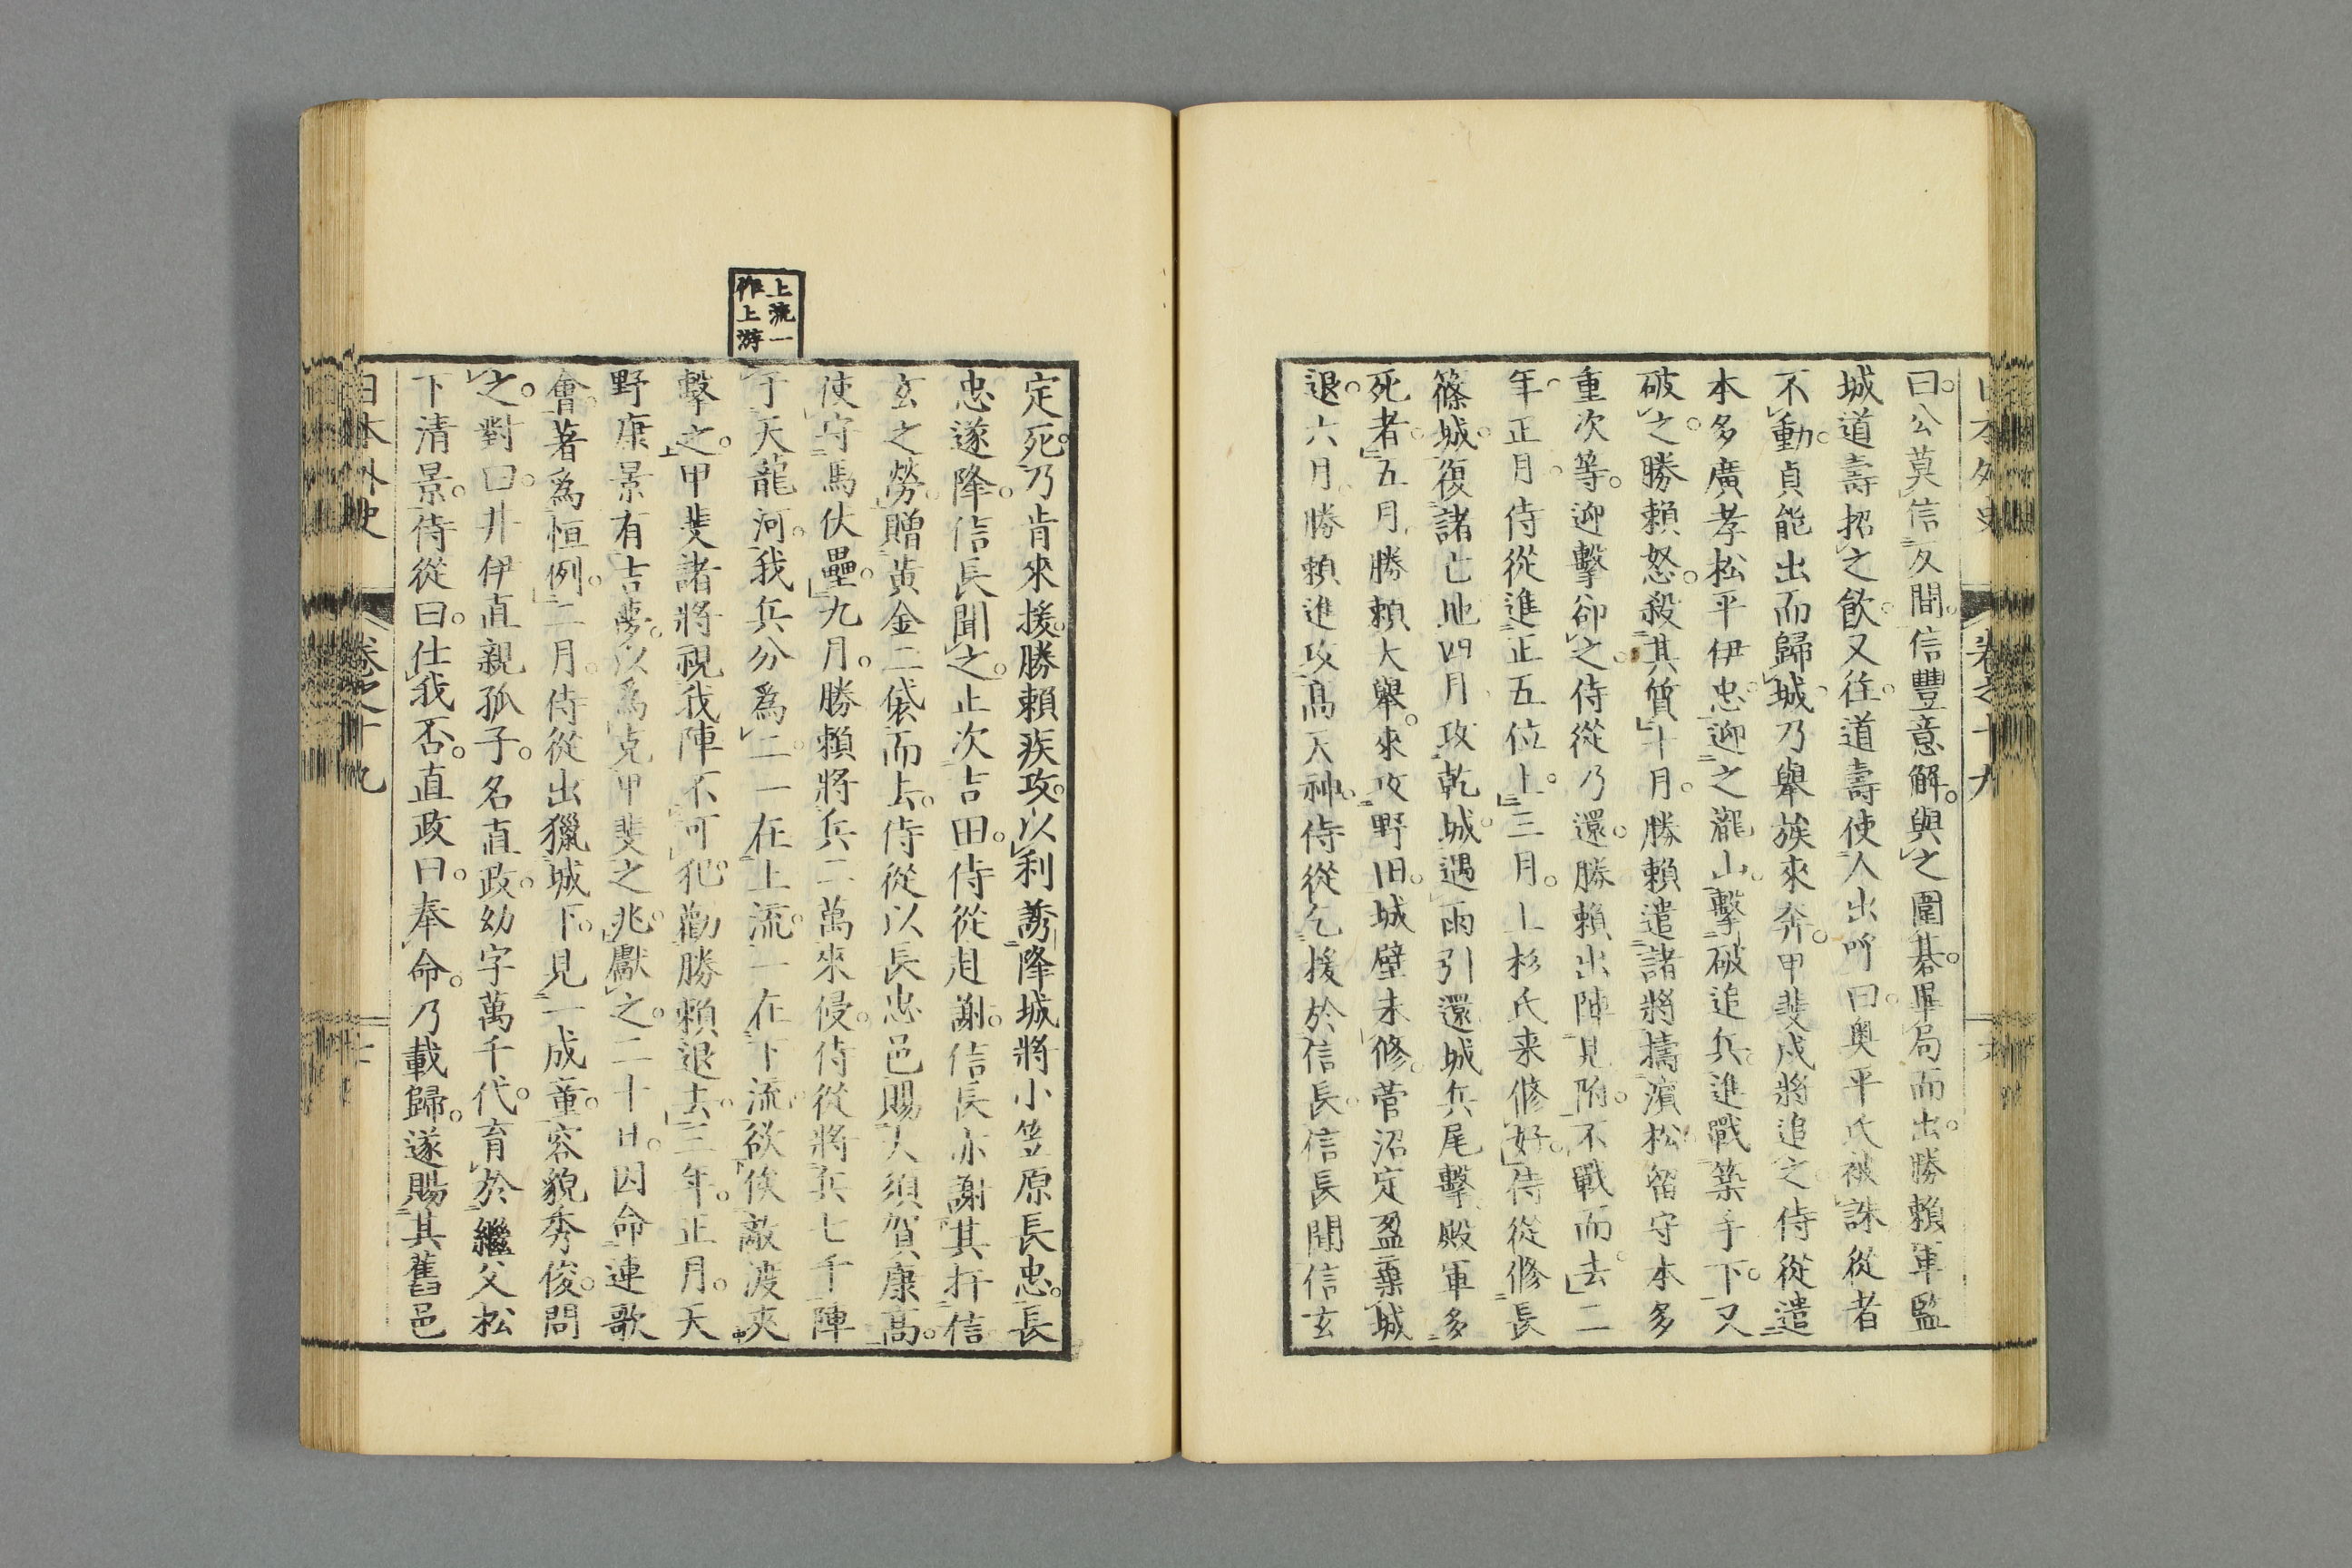 日本外史 卷之十九
曰。公莫信久間。信豐意解。與之圍碁。畢局而出。勝賴軍監
城道壽招之飮。又往。道壽使人出呼曰。奧平氏被誅。從者
不動。貞能出而歸城。乃舉族來奔。甲斐戍將追之。侍從遣
本多廣孝松平伊忠迎之瀧山。擊破追兵。進戰築手下。又
破之。勝賴怒。殺其質。十月。勝賴遣諸將擣濱松。留守本多
重次等。迎擊卻之。侍從乃還。勝賴出陣見附。不戰而去。二
年。正月。侍從進正五位上。三月。上杉氏来修好。侍從修長
篠城。復諸亡地。四月。攻乾城。遇雨引還。城兵尾擊。殿軍多
死者。五月。勝賴大舉。來攻野田。城壁未修。菅沼定盈棄城
退。六月。勝賴進攻高天神。侍從乞援於信長。信長聞信玄
上流一
作上游
定死。乃肯來援。勝賴疾攻。以利誘降城將小笠原長忠。長
忠遂降。信長聞之。止次吉田。侍從赴謝。信長亦謝其扞信
玄之勞。贈黃金二袋而去。侍從以長忠邑賜大須賀康高。
使守馬伏壘。九月。勝賴將兵二萬來侵。侍從將兵七千陣
于天龍河。我兵分爲二。一在上流。一在下流。欲俟敵渡夾
擊之。甲斐諸將視我陣不可犯。勸勝賴退去。三年。正月。天
野康景有吉夢。以爲克甲斐之兆。獻之。二十日。因命連歌
會。著爲恒例。二月。侍從出獵城下。見一成童。容貌秀俊。問
之。對曰。井伊直親孤子。名直政。幼字萬千代。育於繼父松
下清景。侍從曰。仕我否。直政曰。奉命。乃載歸。遂賜其舊邑
日本外史 卷之十九